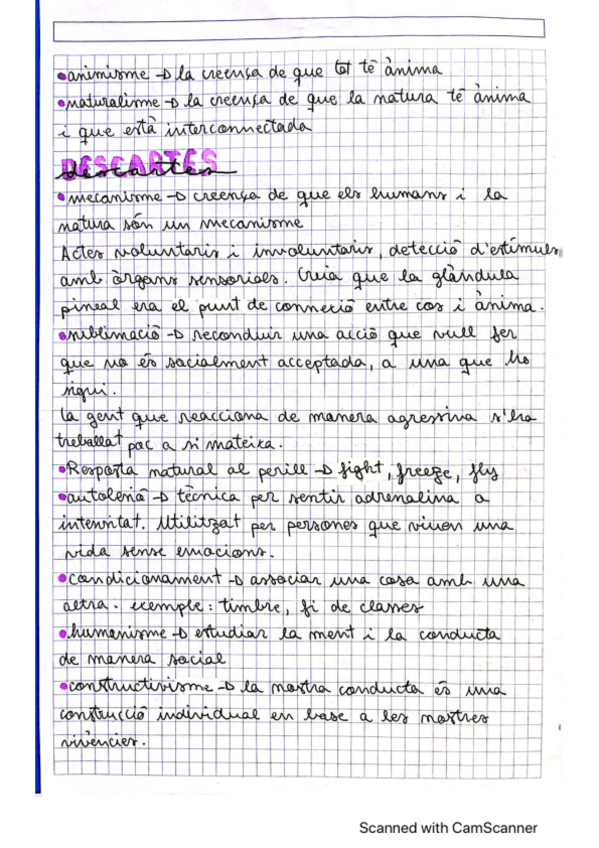 •animisme → la creença de que tot té ànima
•naturalisme → la creença de que la natura té ànima
i que està interconnectada
DESCARTES
descartes
•mecanisme → creença de que els humans i la
natura són un mecanisme
Actes voluntaris i involuntaris, detecció d'estímuls
amb òrgans sensorials. Creia que la glàndula
pineal era el punt de connexió entre cos i ànima.
•sublimació → reconduir una acció que vull fer
que no és socialment acceptada, a una que ho
sigui.
la gent que reacciona de manera agressiva s'ha
treballat poc a si mateixa.
•Resposta natural al perill → fight, freeze, fly
•autolesió → tècnica per sentir adrenalina a
intensitat. Utilitzat per persones que viuen una
vida sense emocions.
•condicionament → associar una cosa amb una
altra. exemple: timbre, fi de classes
•humanisme → estudiar la ment i la conducta
de manera social
•constructivisme → la nostra conducta és una
construcció individual en base a les nostres
vivències.
Scanned with CamScanner